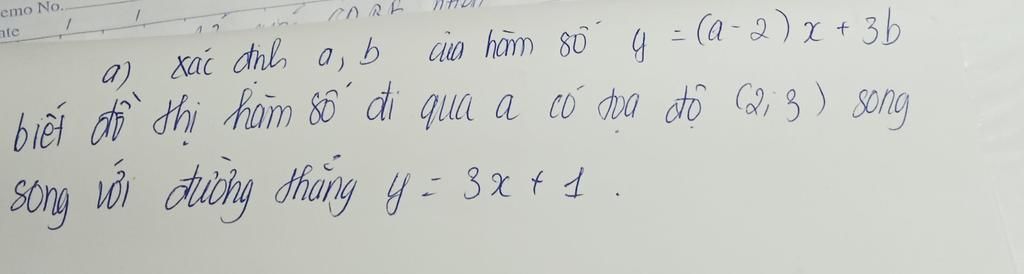 emo No.
ate
a) xác định a, b của hàm số y = (a-2) x + 3b
biết đồ thị hàm số đi qua a có tọa độ (2; 3) song
song với đường thẳng y = 3x + 1 .